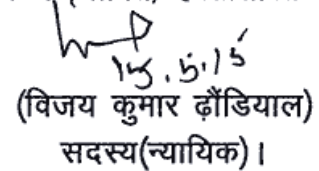 15.5.15
(विजय कुमार ढ़ौंडियाल)
सदस्य(न्यायिक)।